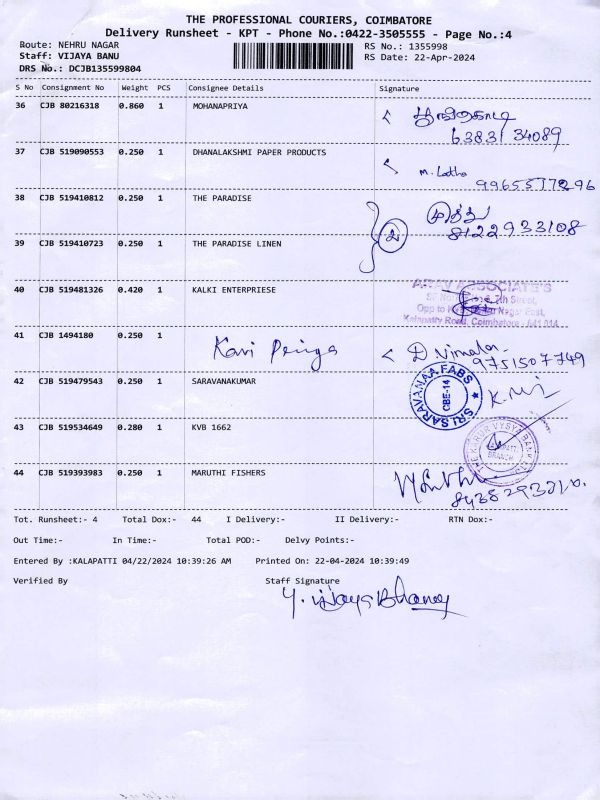 THE PROFESSIONAL COURIERS, COIMBATORE
Delivery Runsheet - KPT - Phone No.:0422-3505555 - Page No.:4
Route: NEHRU NAGAR
RS No.: 1355998
Staff: VIJAYA BANU
RS Date: 22-Apr-2024
DRS No.: DCJB135599804
S No Consignment No Weight PCS Consignee Details Signature
36 CJB 80216318 0.860 1 MOHANAPRIYA
6383134089
37 CJB 519090553 0.250 1 DHANALAKSHMI PAPER PRODUCTS
M. Latha
9965517296
38 CJB 519410812 0.250 1 THE PARADISE
8122933108
2
39 CJB 519410723 0.250 1 THE PARADISE LINEN
40 CJB 519481326 0.420 1 KALKI ENTERPRIESE
ARAV ASSOCIATE'S
7th Street,
Opp to Nagar East,
Kalapatty Road, Coimbatore - 641 014.
41 CJB 1494180 0.250 1 Kavi Priya D. Vimala
9751507749
42 CJB 519479543 0.250 1 SARAVANAKUMAR
SRI SARAVANAA FABS
CBE-14
43 CJB 519534649 0.280 1 KVB 1662
THE KARUR VYSYA BANK LTD.
BRANCH
44 CJB 519393983 0.250 1 MARUTHI FISHERS
Tot. Runsheet:- 4 Total Dox:- 44 I Delivery:- II Delivery:- RTN Dox:-
Out Time:- In Time:- Total POD:- Delvy Points:-
Entered By :KALAPATTI 04/22/2024 10:39:26 AM Printed On: 22-04-2024 10:39:49
Verified By Staff Signature
Y. VijayaBhanu